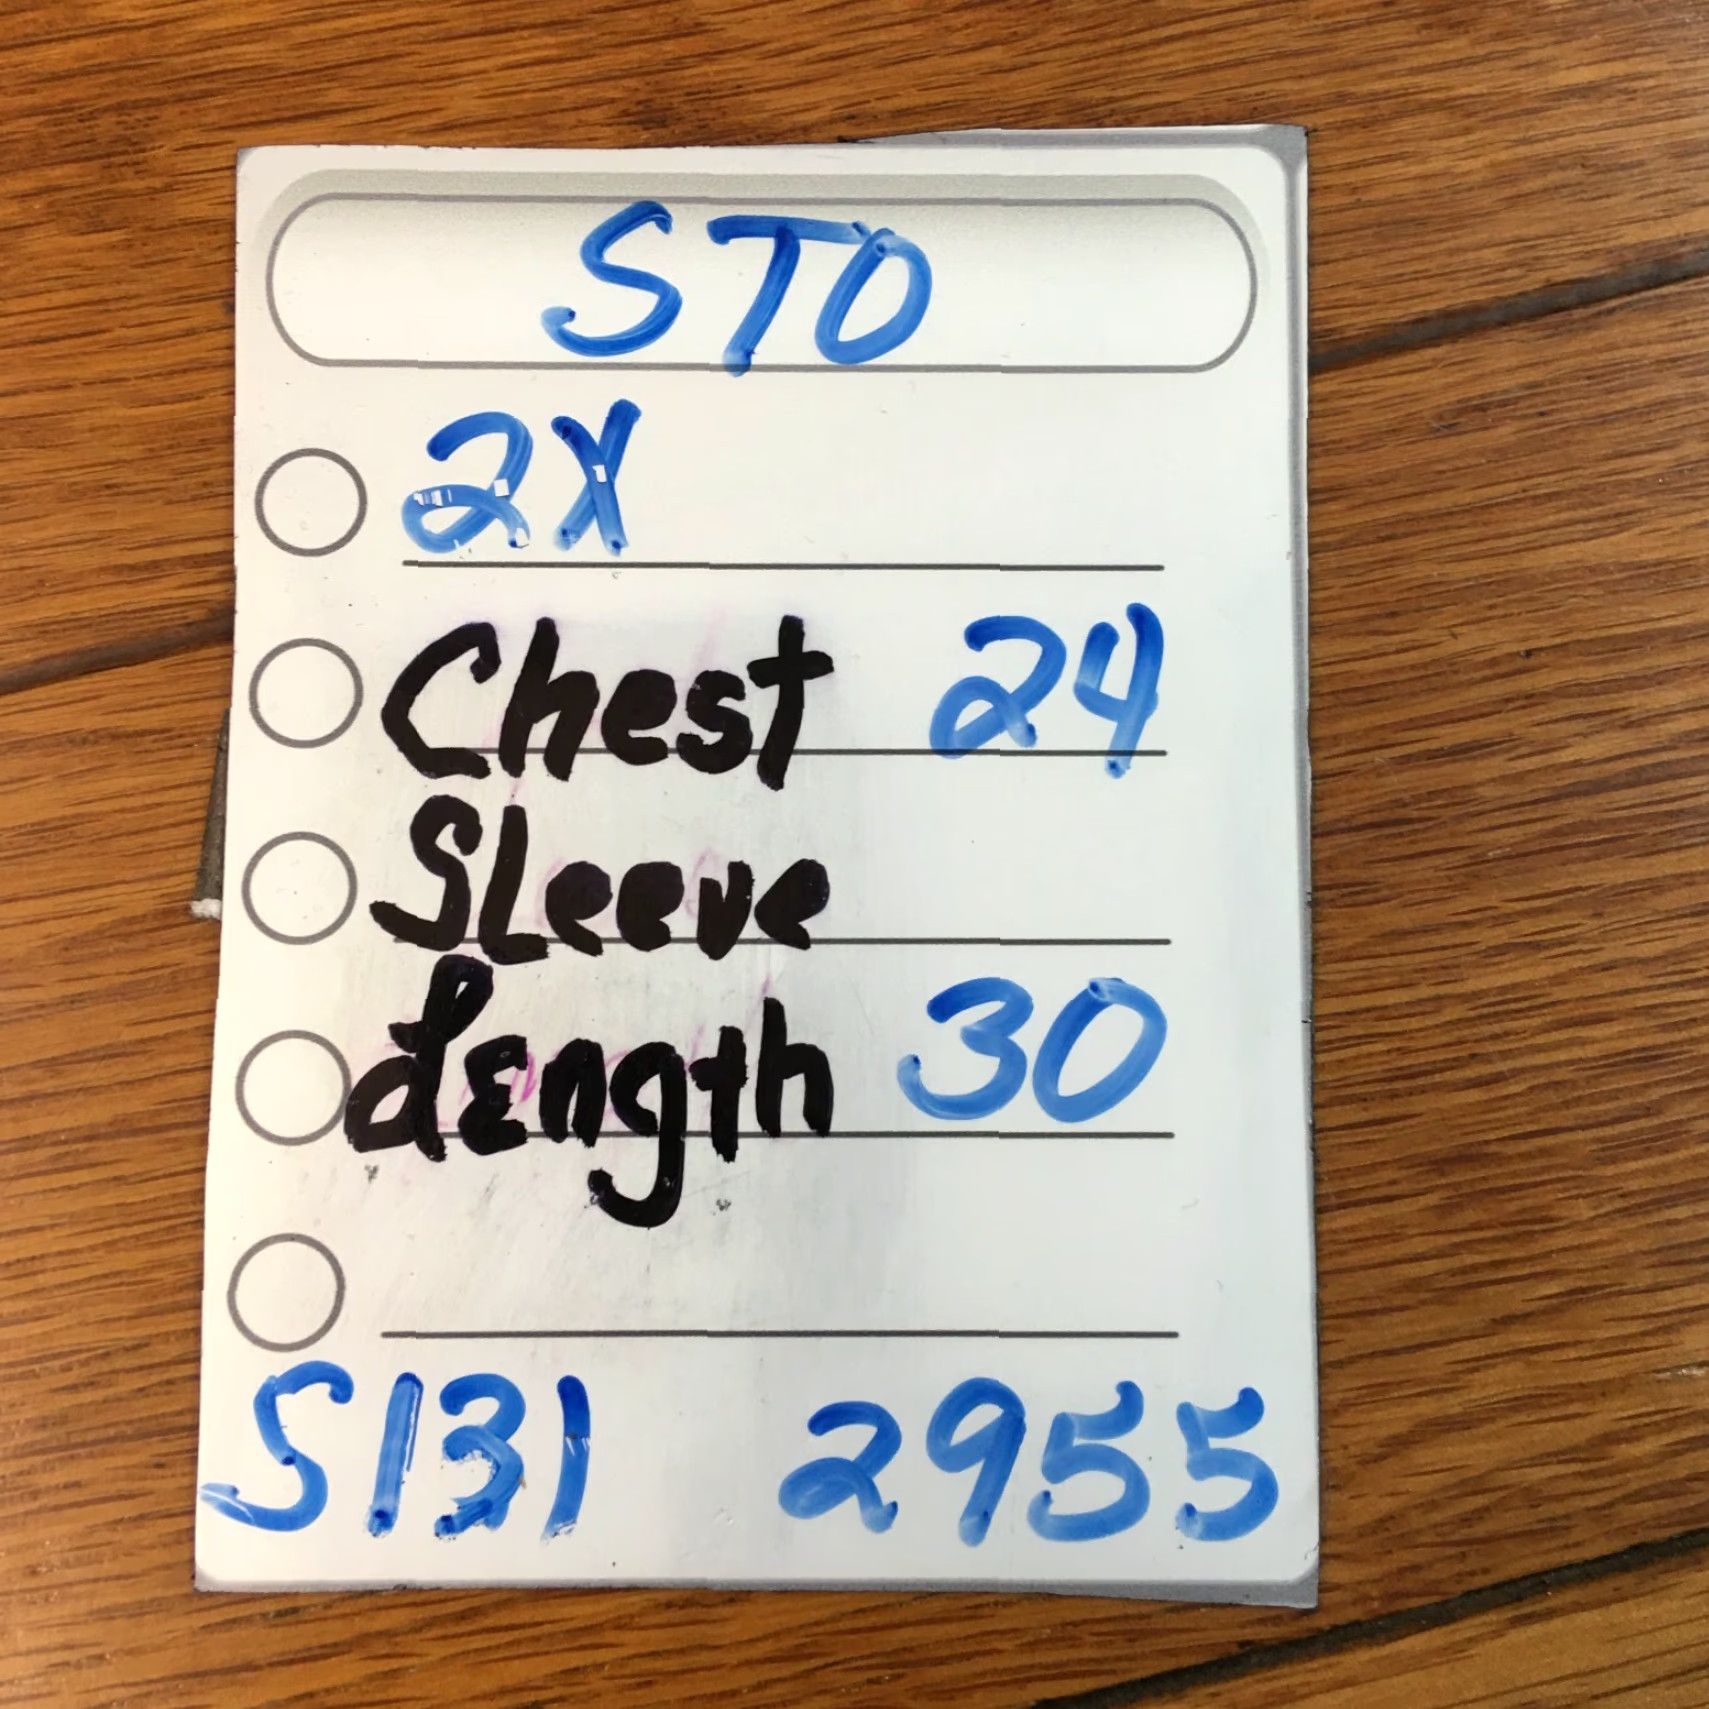 STO
2X
Chest 24
SLeeve
Length 30
S131 2955